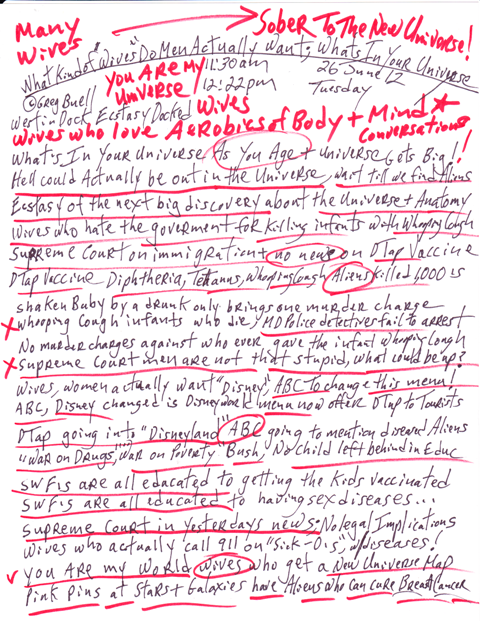 Many Wives → Sober To The New Universe!
What Kind of "Wives" Do Men Actually Want, Whats In Your Universe
©Greg Buell You Are My Universe 11:30am 12:22pm 26 June 12 Tuesday
Went in Dock Ecstasy Docked Wives
Wives who love Aerobics of Body + Mind Conversations
What's In Your Universe As You Age + Universe Gets Big!!
Hell could Actually be out in the Universe, wait till we find Aliens
Ecstasy of the next big discovery about the Universe + Anatomy
Wives who hate the goverment for killing infants with Whooping Cough
Supreme Court on immigration + no news on DTap Vaccine
DTap Vaccine Diphtheria, Tetanus, Whooping Cough Aliens killed 1,000 is
shaken Baby by a drunk only brings one murder charge
x Whooping Cough infants who die, MD Police detectives fail to arrest
No murder charges against who ever gave the infant Whooping Cough
x Supreme Court men are not that stupid, what could be up?
Wives, women actually want "Disney" ABC To change this menu!
ABC, Disney changed is Disneyworld menu now offer DTap to Tourists
DTap going into "Disneyland" "ABC" going to mention diseased Aliens
"War on Drugs", "War on Poverty" Bush, No child left behind in Educ
SWF's are all educated to getting the kids vaccinated
SWF's are all educated to having sex diseases...
Supreme Court in Yesterdays news: No legal Implications
Wives who actually call 911 on "Sick-O's", w/diseases!
✓ You Are my World Wives who get a New Universe Map
Pink Pins at Stars + Galaxies have Aliens who can cure Breast Cancer